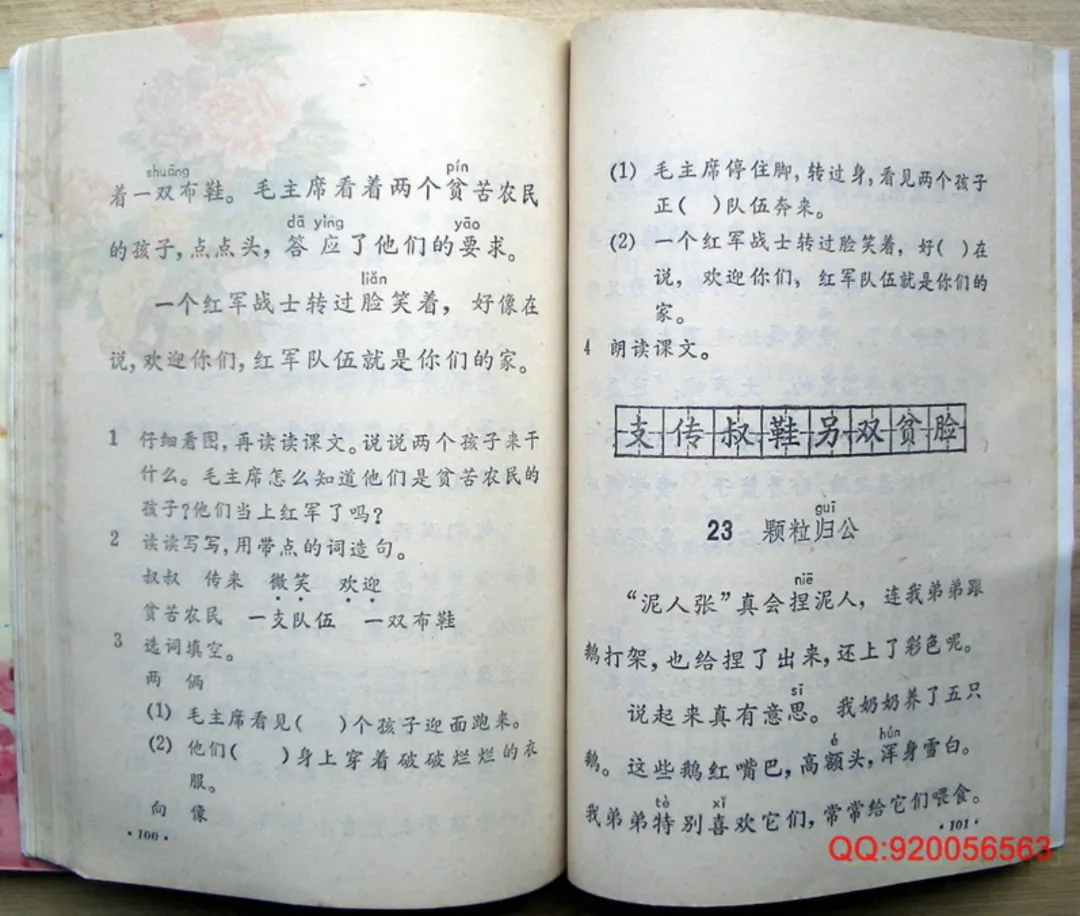 shuāng pín
着一双布鞋。毛主席看着两个贫苦农民
dā yìng yāo
的孩子,点点头,答应了他们的要求。
liǎn
一个红军战士转过脸笑着,好像在
说,欢迎你们,红军队伍就是你们的家。
1 仔细看图,再读读课文。说说两个孩子来干
什么。毛主席怎么知道他们是贫苦农民的
孩子?他们当上红军了吗?
2 读读写写,用带点的词造句。
叔叔 传来 微笑 欢迎
贫苦农民 一支队伍 一双布鞋
3 选词填空。
两 俩
(1) 毛主席看见( )个孩子迎面跑来。
(2) 他们( )身上穿着破破烂烂的衣
服。
向 像
·100·
(1) 毛主席停住脚,转过身,看见两个孩子
正( )队伍奔来。
(2) 一个红军战士转过脸笑着,好( )在
说,欢迎你们,红军队伍就是你们的
家。
4 朗读课文。
支传叔鞋另双贫脸
guī
23 颗粒归公
niē
“泥人张”真会捏泥人,连我弟弟跟
鹅打架,也给捏了出来,还上了彩色呢。
sī
说起来真有意思。我奶奶养了五只
é hún
鹅。这些鹅红嘴巴,高额头,浑身雪白。
tè xǐ
我弟弟特别喜欢它们,常常给它们喂食。
·101·
QQ:920056563